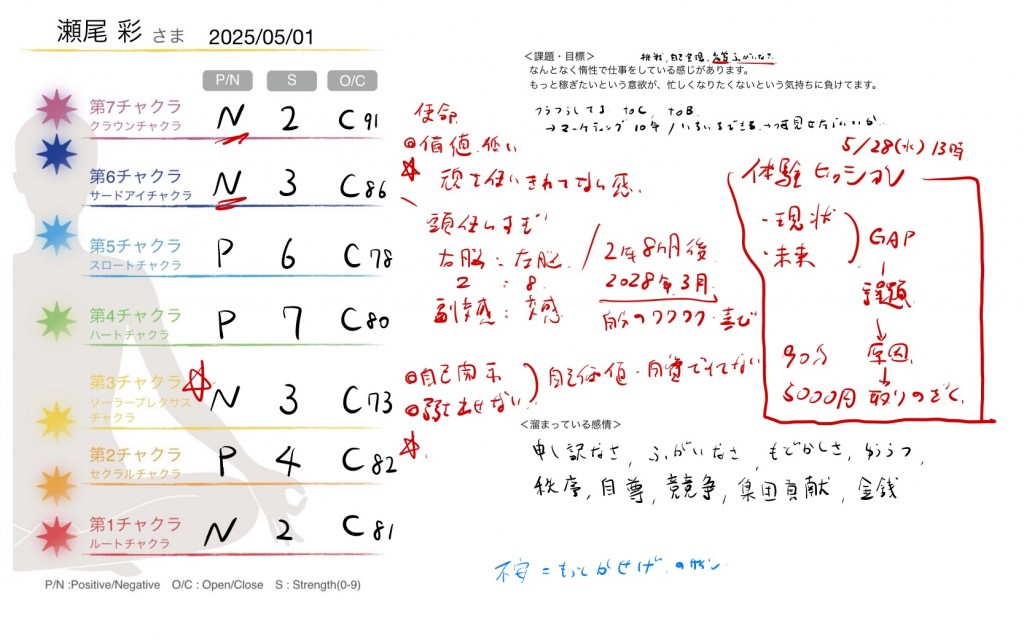 瀬尾 彩 さま 2025/05/01
P/N S O/C
第7チャクラ
クラウンチャクラ
N 2 C 91
第6チャクラ
サードアイチャクラ
N 3 C 86
第5チャクラ
スロートチャクラ
P 6 C 78
第4チャクラ
ハートチャクラ
P 7 C 80
第3チャクラ
ソーラープレクサス
チャクラ
N 3 C 73
第2チャクラ
セクラルチャクラ
P 4 C 82
第1チャクラ
ルートチャクラ
N 2 C 81
P/N :Positive/Negative O/C : Open/Close S : Strength(0-9)
使命
価値 低い
頭を使いきれてない感
頭使いすぎ
右脳:左脳
2 : 8
2年8ヶ月後
2028年3月
自分のワクワク・喜び
自己開示
弱さ出せない
自己価値・自覚できてない
<課題・目標>
挑戦,自己実現,
なんとなく惰性で仕事をしている感じがあります。
もっと稼ぎたいという意欲が、忙しくなりたくないという気持ちに負けてます。
フラフラしてる toC, toB
→マーケティング10年/いろいろできる→
5/28(水) 13時
体験セッション
・現状
・未来
GAP
課題
原因
取りのぞく
90分
5000円
<溜まっている感情>
申し訳なさ, ふがいなさ, もどかしさ, ゆううつ,
秩序, 自尊, 競争, 集団貢献, 金銭
不安=もっとかせげ の